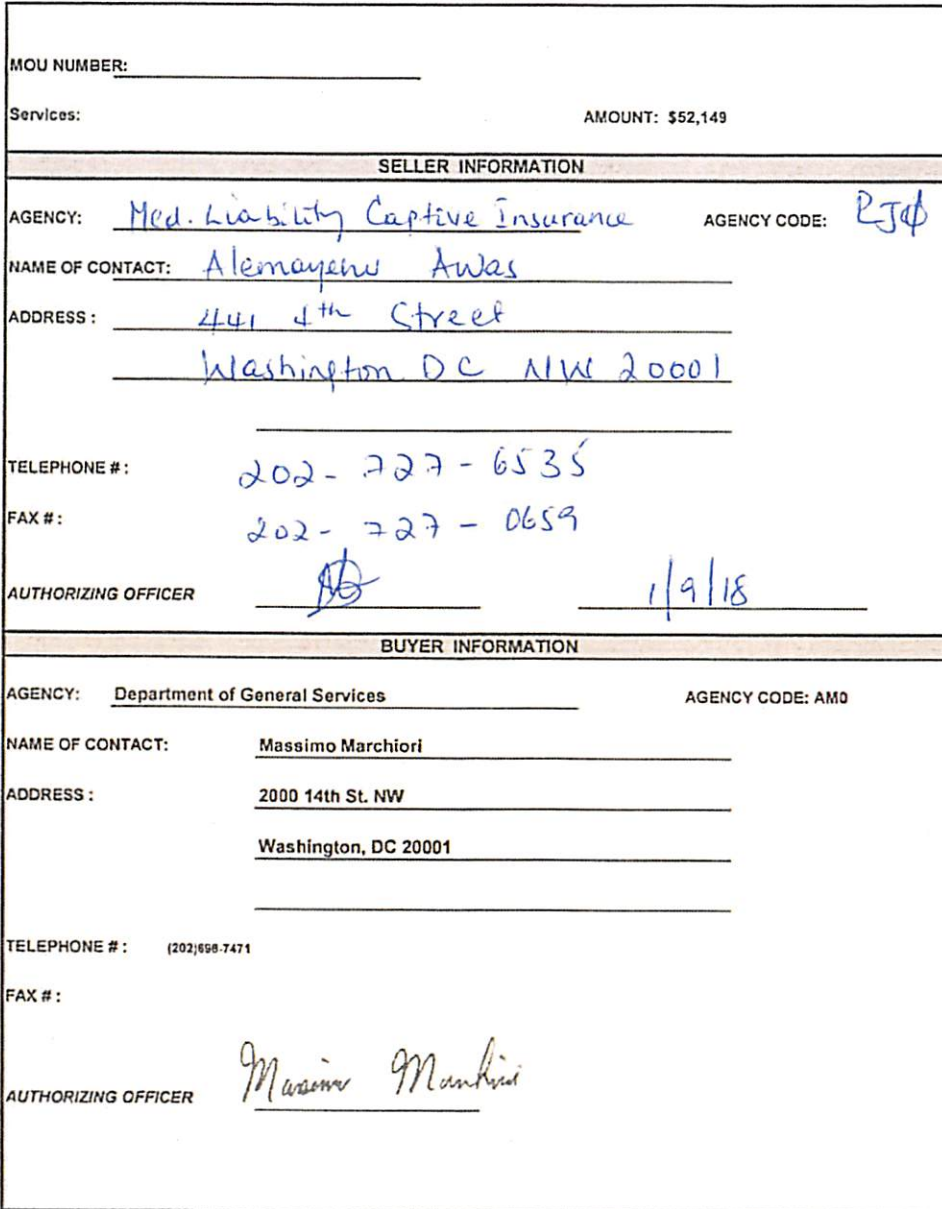 MOU NUMBER:
Services: AMOUNT: $52,149
SELLER INFORMATION
AGENCY: Med. Liability Captive Insurance AGENCY CODE: RJ0
NAME OF CONTACT: Alemayehu Awas
ADDRESS : 441 4th Street
Washington DC NW 20001
TELEPHONE # : 202-727-6535
FAX # : 202-727-0659
AUTHORIZING OFFICER 1/9/18
BUYER INFORMATION
AGENCY: Department of General Services AGENCY CODE: AM0
NAME OF CONTACT: Massimo Marchiori
ADDRESS : 2000 14th St. NW
Washington, DC 20001
TELEPHONE # : (202)698-7471
FAX # :
AUTHORIZING OFFICER Massimo Marchiori